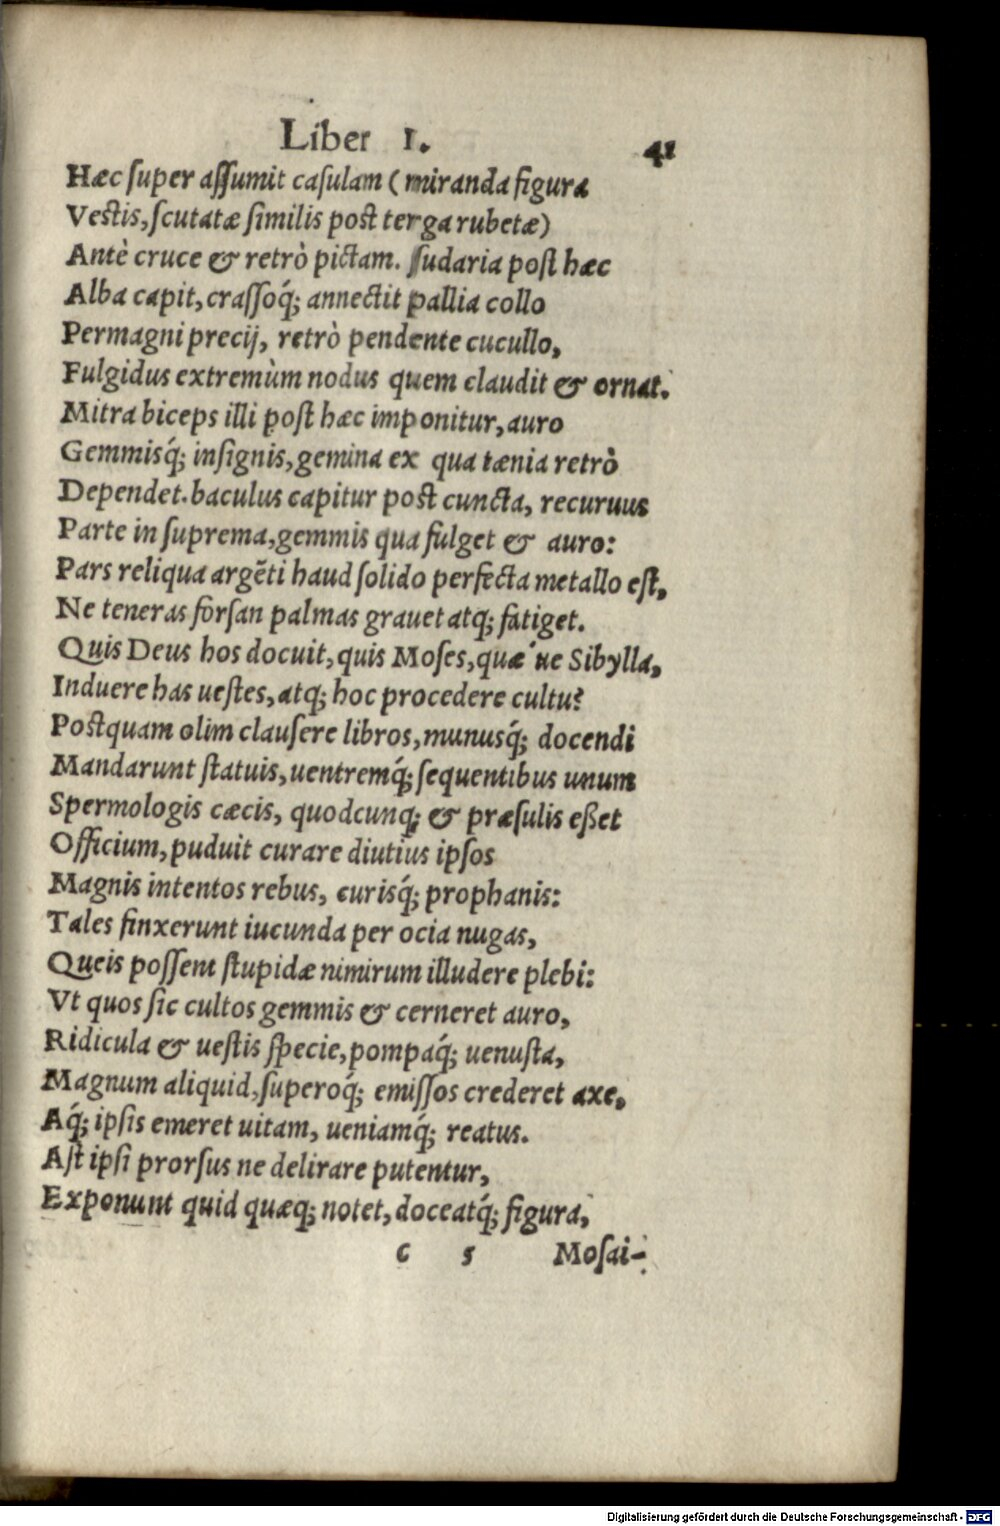 Liber I. 41
Hæc ſuper aſſumit caſulam (miranda figura
Veſtis, ſcutatæ ſimilis poſt terga rubetæ)
Antè cruce & retrò pictam. ſudaria poſt hæc
Alba capit, craſſoq́; annectit pallia collo
Permagni precij, retrò pendente cucullo,
Fulgidus extremùm nodus quem claudit & ornat.
Mitra biceps illi poſt hæc imponitur, auro
Gemmisq́; inſignis, gemina ex qua tænia retrò
Dependet. baculus capitur poſt cuncta, recuruus
Parte in ſuprema, gemmis qua fulget & auro:
Pars reliqua argẽti haud ſolido perfecta metallo eſt,
Ne teneras forſan palmas grauet atq; fatiget.
Quis Deus hos docuit, quis Moſes, quæ ́ue Sibylla,
Induere has ueſtes, atq; hoc procedere cultu?
Poſtquam olim clauſere libros, munusq́; docendi
Mandarunt ſtatuis, uentremq́; ſequentibus unum
Spermologis cæcis, quodcunq; & præſulis eßet
Officium, puduit curare diutius ipſos
Magnis intentos rebus, curisq́; prophanis:
Tales finxerunt iucunda per ocia nugas,
Queis poſſent ſtupidæ nimirum illudere plebi:
Vt quos ſic cultos gemmis & cerneret auro,
Ridicula & ueſtis ſpecie, pompaq́; uenuſta,
Magnum aliquid, ſuperoq́; emiſſos crederet axe,
Aq́; ipſis emeret uitam, ueniamq́; reatus.
Aſt ipſi prorſus ne delirare putentur,
Exponunt quid quæq; notet, doceatq́; figura,
c 5 Moſai-
Digitalisierung gefördert durch die Deutsche Forschungsgemeinschaft - DFG